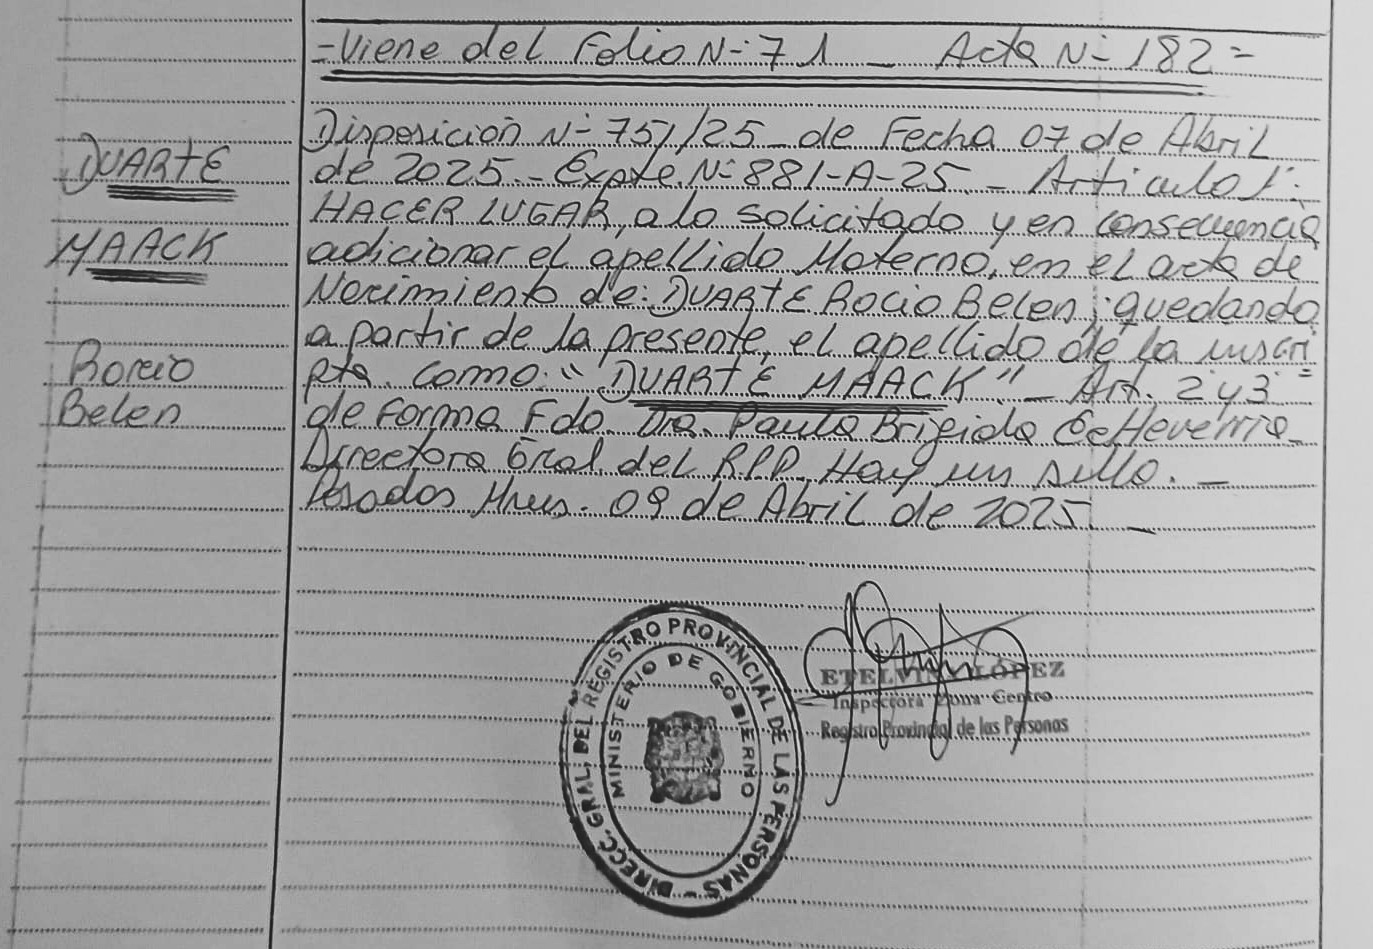 =Viene del Folio N-° 71 _ Acta N-° 182=
Disposición N-° 757/25_ de Fecha 07 de Abril
de 2025._ Expte. N-° 881-A-25._ Articulo 1°:
HACER LUGAR, a lo solicitado y en consecuencia
adicionar el apellido Materno, en el acta de
Nacimiento de: DUARTE Rocio Belen; quedando
a partir de la presente, el apellido de la inscri
pta. como: "DUARTE MAACK"._ Art. 2 y 3=
de Forma Fdo. Dra. Paula Brigida Echeverria_
Directora Gral del RPP. Hay un sello._
Posadas Mnes. 09 de Abril de 2025_
DUARTE
MAACK
Rocio
Belen
DIRECC. GRAL. DEL REGISTRO PROVINCIAL DE LAS PERSONAS -
MINISTERIO DE GOBIERNO
ETELVINA LÓPEZ
Inspectora Zona Centro
Registro Provincial de las Personas